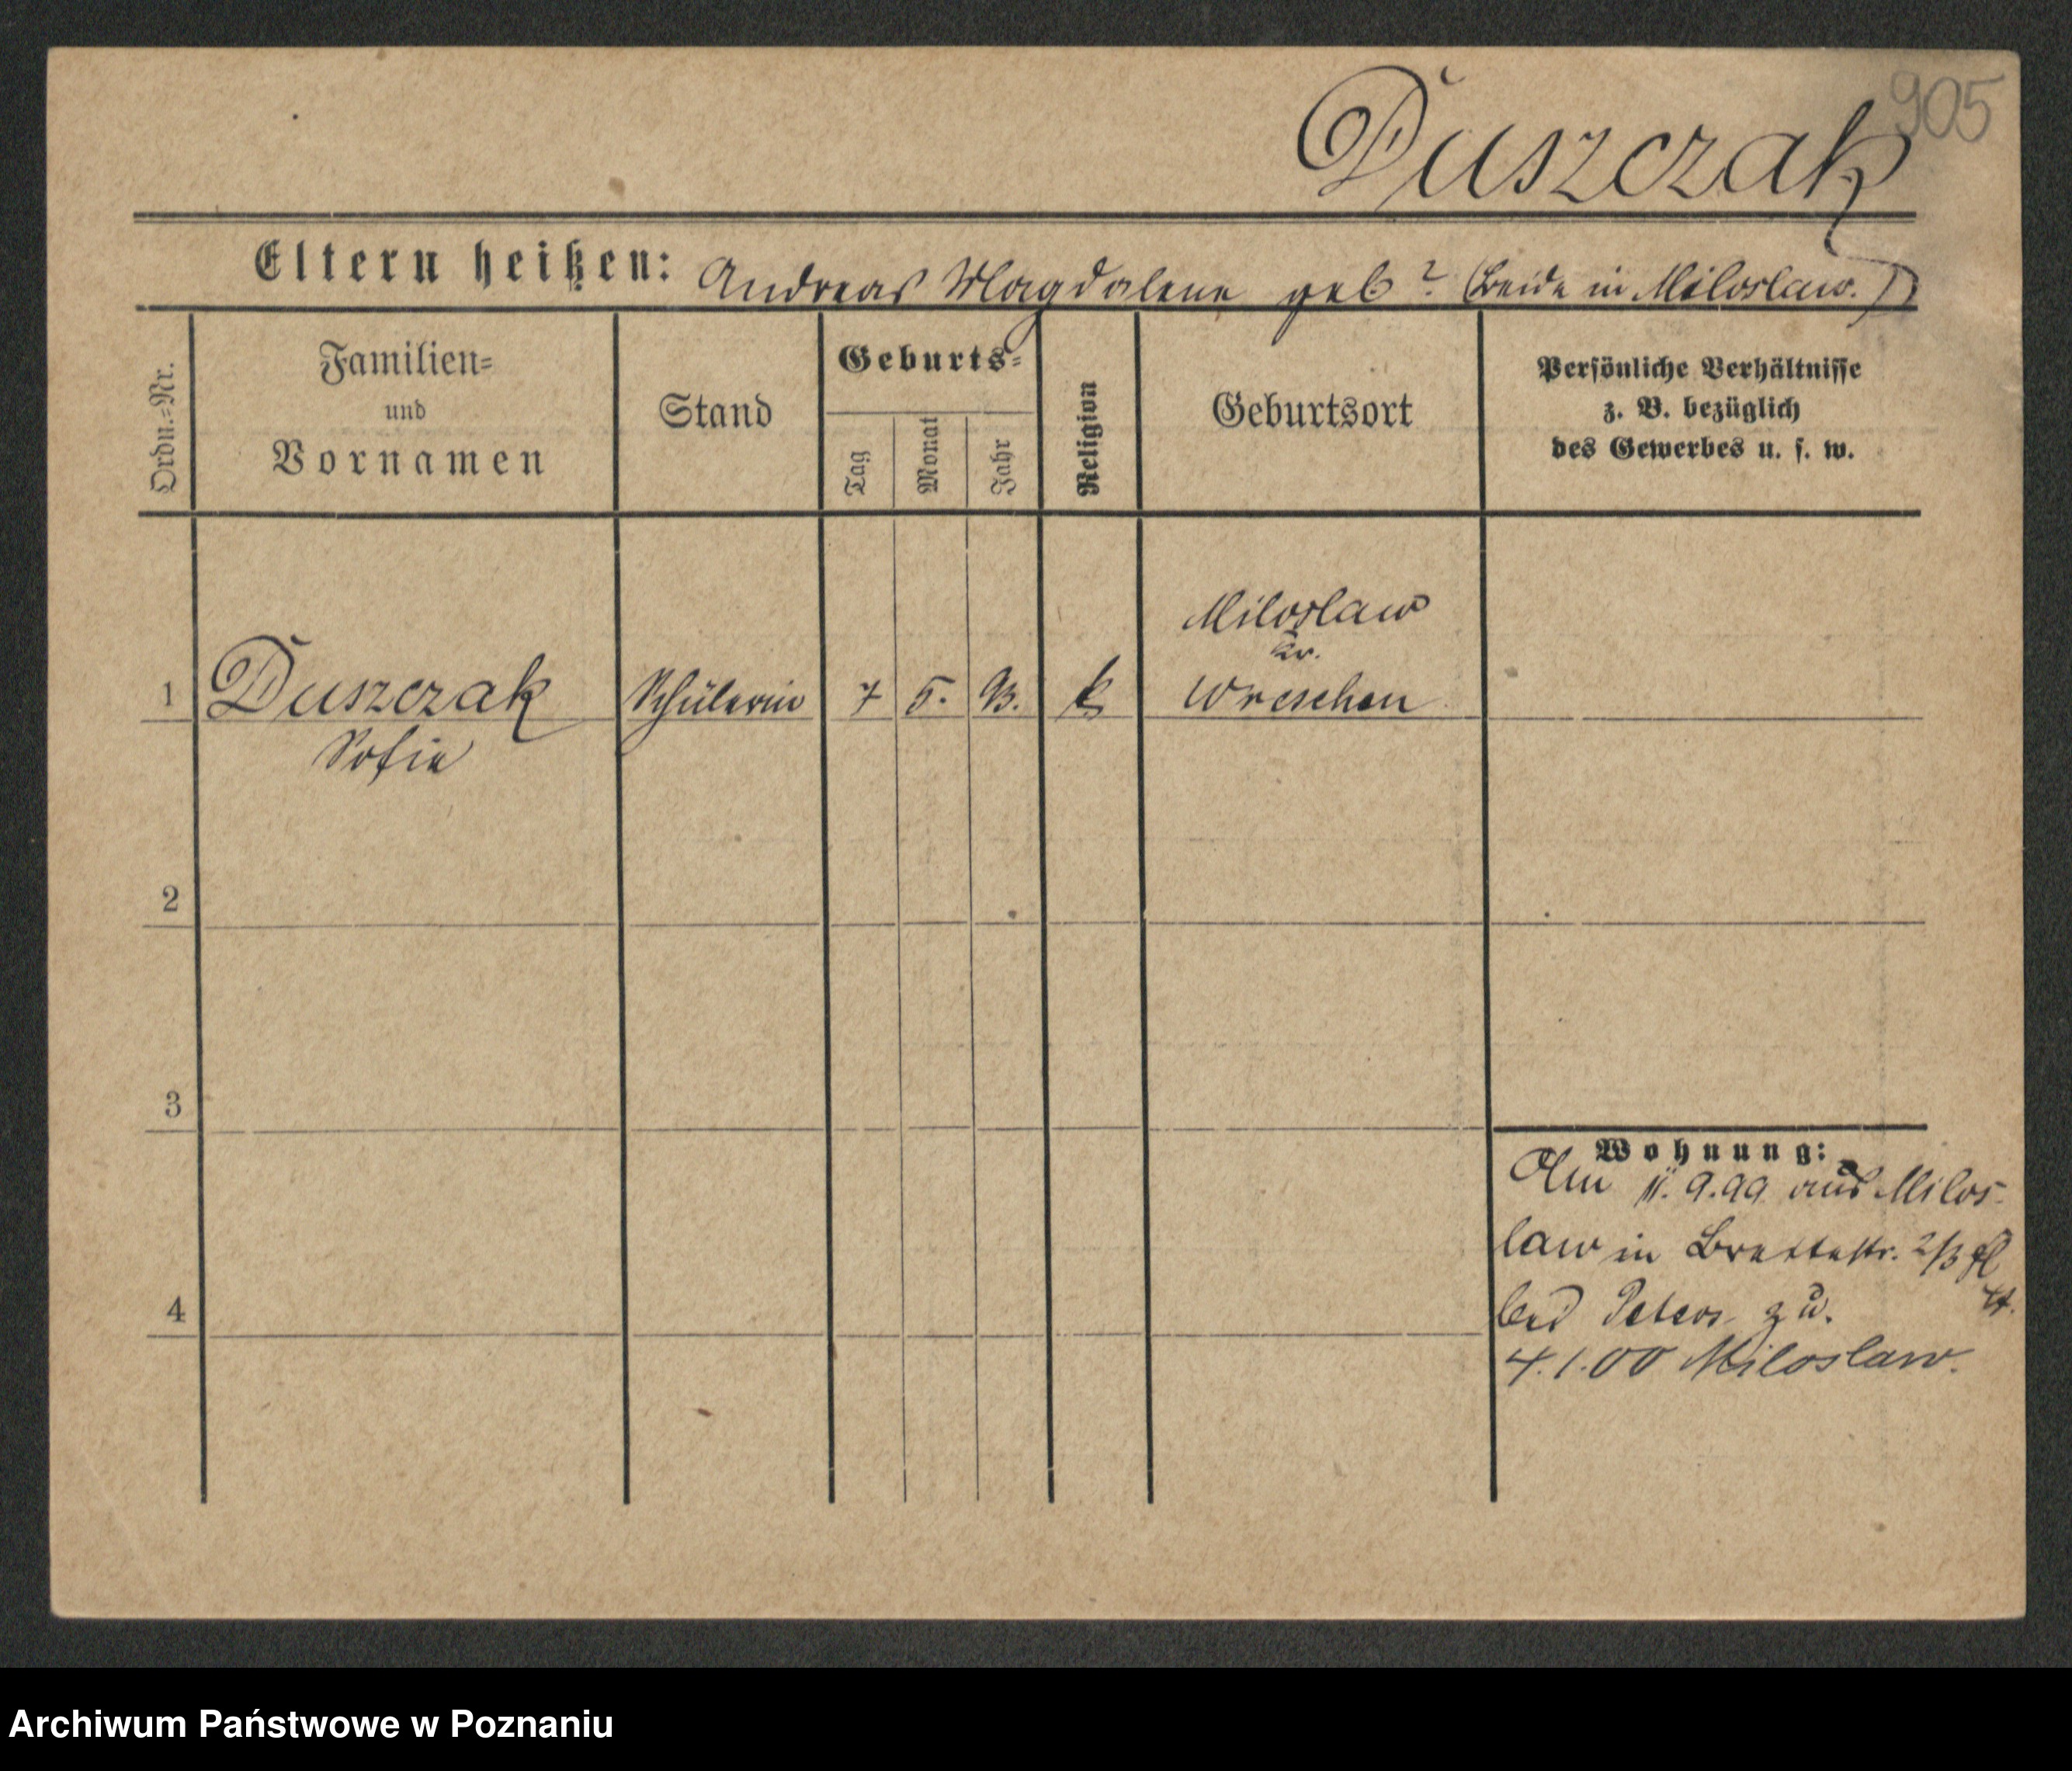 905
Duszczak
Eltern heißen: Andreas Magdalene geb? (beide in Miloslaw.)
Ordn.=Nr.
Familien=
und
Vornamen
Stand
Geburts=
Tag
Monat
Jahr
Religion
Geburtsort
Persönliche Verhältnisse
z. B. bezüglich
des Gewerbes u. s. w.
Miloslaw
Kr.
1 Duszczak Schülerin 7 5. 93. k Wreschen
Sofie
2
3
4
Wohnung:
Am 11. 9.99 aus Milos-
law in Breitestr. 2/3
bei Peters zu.
4.1.00 Miloslaw.
Archiwum Państwowe w Poznaniu